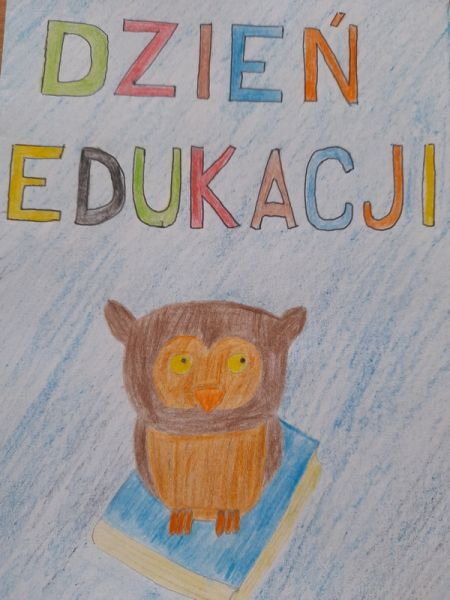 DZIEŃ
EDUKACJI